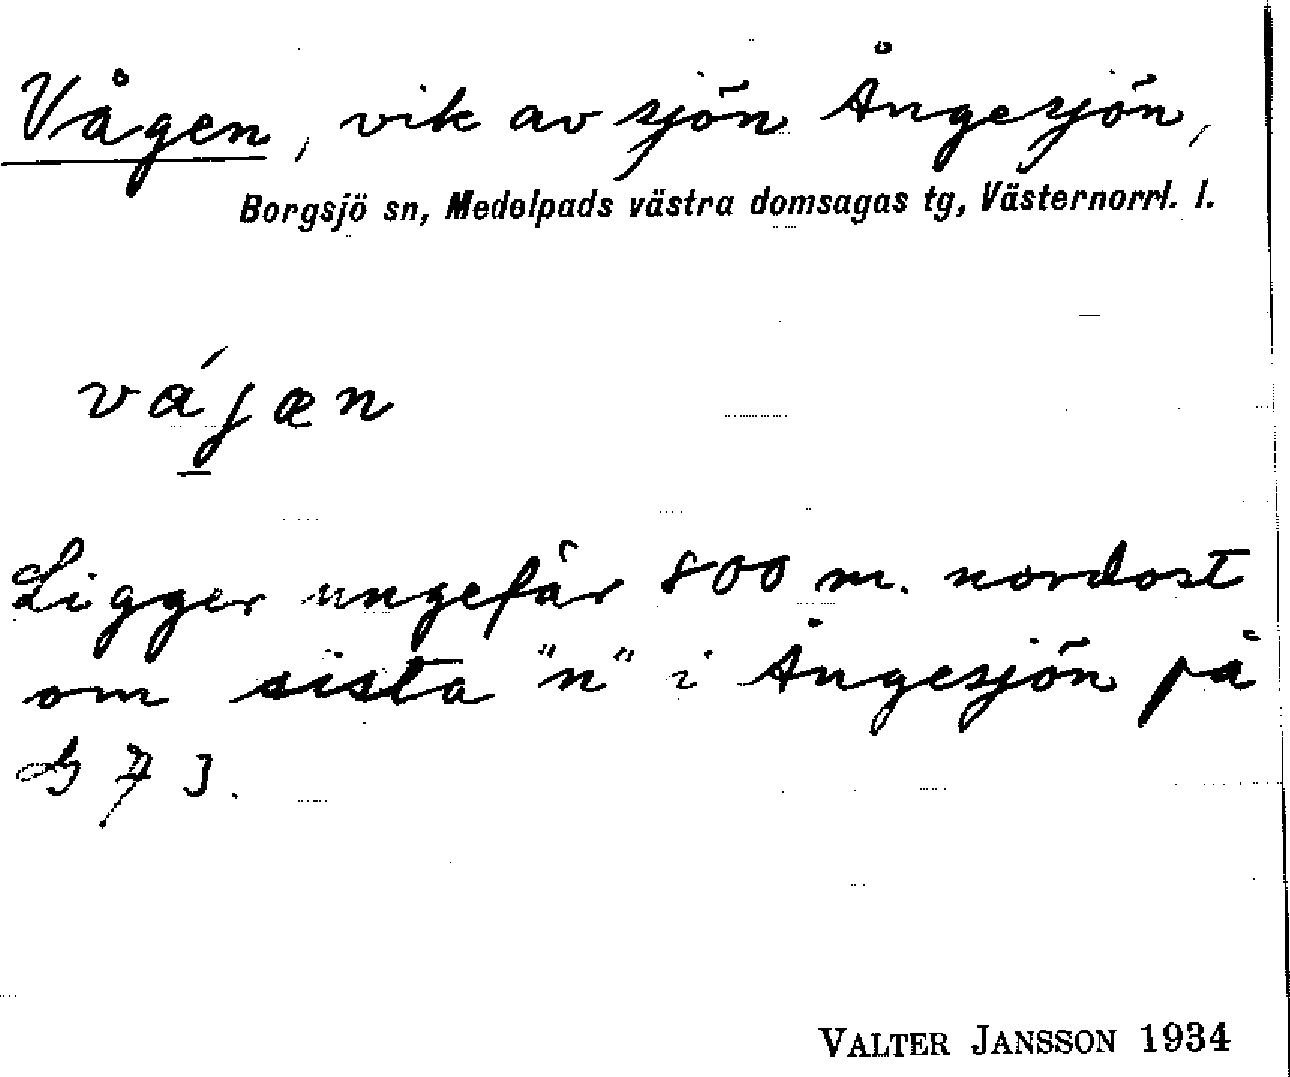 Vågen, vik av sjön Ångesjön,
Borgsjö sn, Medelpads västra domsagas tg, Västernorrl. l.
vá̱jæn
Ligger ungefär 800 m. nordost
om sista "n" i Ångesjön på
G 73.
VALTER JANSSON 1934